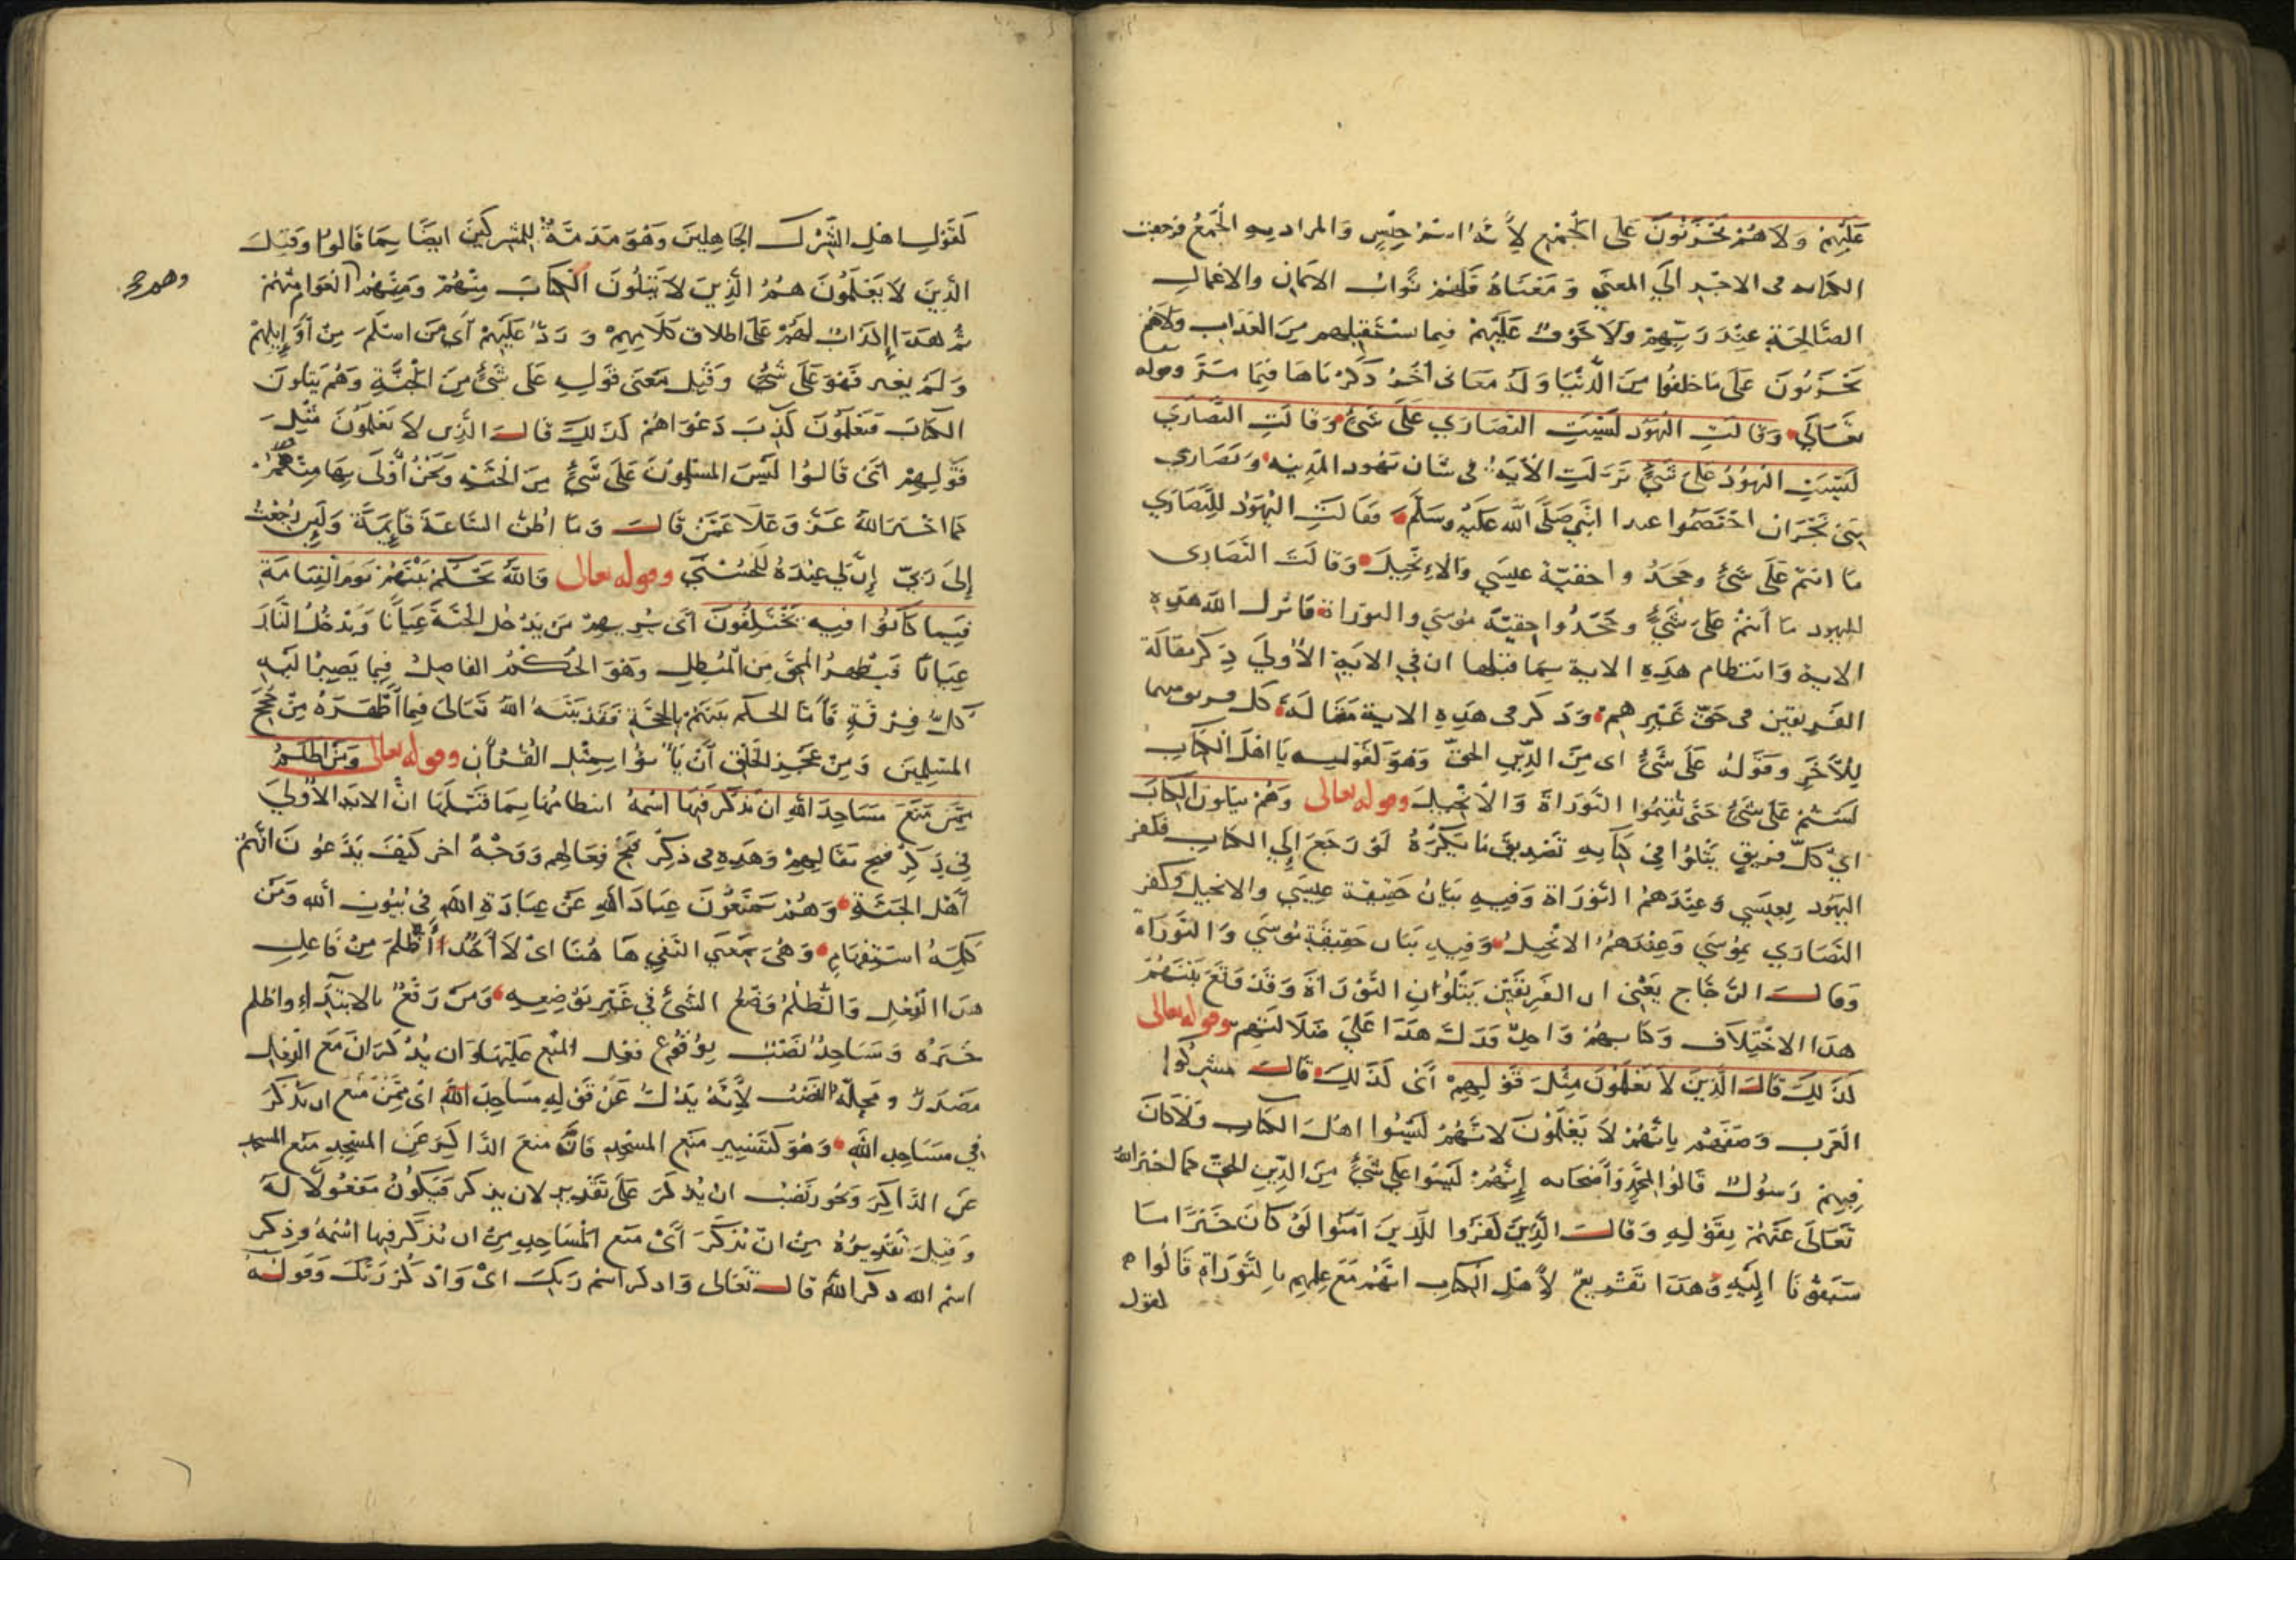 عَلَيْهِمْ وَلَا هُمْ يَحْزَنُونَ عَلَى الْجَمْعِ لِأَنَّهُ اسْمُ جِنْسٍ وَالمراد به الْجَمْعُ فرجعت
الكنايه في الاخير الَي المعنَي وَ مَعْنَاهُ فَلَهُمْ ثَوَابُ الايمَانِ والاعْمالِ
الصَّالِحَةِ عِنْدَ رَبِّهِمْ وَلَا خَوْفٌ عَلَيْهِمْ فيما يستقبلهم مِنَ العَذَابِ وَلَا هُمْ
يَحْزَنُونَ عَلَى مَا خلفُوا مِنَ الدُّنْيَا وَلَهُ مَعَاني أُخَرُ ذَكَرْنَاهَا فِيمَا مَرَّ وقوله
تعَالَي وَقَالَتِ الْيَهُود لَيْسَتِ النَّصَارَي عَلَى شَيْءٍ وَقَالَتِ النَّصَارَي
لَيْسَتِ الْيَهُودُ عَلَىَ شَيْءٍ نَزَلَتِ الْأيَةُ في شان يَهُود المَدِينه وَنَصَارَي
بَنِي نَجْرَانَ اخْتَصَمُوا عند النَّبِي صَلَّى اللَّه عَلَيْهِ وَسَلَّمَ فَقَالَتِ الْيَهُوْدُ لِلنَّصَارَي
مَا انتمْ عَلَى شَيْءٍ وجَحَدُوا حقيّة عيسَي وَالْاِنْجِيلَ وَقالَتَ النَّصَارى
لليهود مَا أنتمْ عَلىَ شَيْءٍ وجَحَدُوا حِقيّةَ موُسَي والتورَاةَ فانزل الله هَذِهِ
الاية وَانتظام هَذِهِ الاية بِمَا قبلها ان في الايَةِ الْأُولَيَ ذِكْرَ مقَالَة
الفَرِيقين في حَقّ غَيْرِهِمْ وَذكر في هَذِهِ الاية مقَالَة كل فريق منهما
لِلْآخَرِ وقَوْلهُ عَلَى شَيْءٍ اى مِنَ الدِّينِ الحقّ وَهُوَ كَقَوْلِه يَا اهْلَ الْكِتَابِ
لَسْتُمْ عَلَى شَيْءٍ حَتَّى تُقِيمُوا التَّوْرَاةَ وَالْاِنْجِيلَ وقوله تعالى وَهُمْ يَتْلُونَ الْكِتَابَ
ايْ كلّ فريقٍ يَتْلُوا في كِتَابِهِ تَصْدِيقَ مَا يَكْفُرُهُ لَوْ رَجَعَ إِلَي الكتَابِ فكفر
اليَهُود بِعِيسَي وَعِنْدَهمُ التَّوْرَاة وَفِيهِ بَيَانُ حَقِيقة عِيسَي والانجيل وَكفر
النَّصَارَي بِمُوْسَي وَعِنْدَهُمُ الانْجِيلُ وَفِيهِ بَيَان حَقِيقَةِ مُوسَي وَالتَّوْرَاة
وَقَالَ الزّجَّاج يَعْنِي ان الفَرِيقَيْن يَتْلُوانِ التَّوْرَاةَ وَقَدْ وَقَعَ بَيْنَهُمْ
هَذا الاخْتِلَاف وَكِتَابهمُ وَاحِدٌ فَدَلَّ هَذَا عَلىَ ضَلَالَتِهِم وقوله تعالى
كَذَلِكَ قَالَ الَّذِينَ لَا يَعْلَمُونَ مِثْلَ قَوْلِهِمْ أىْ كَذَلِكَ قَالَ مشركُوا
الْعَرَب وَصَفَهُمْ بِانَّهُمْ لَا يَعْلَمُونَ لانَّهُمْ لَيْسُوا اهْلَ الكتَابِ وَلَا كَانَ
فِيهِمْ رَسُولٌ قَالُوا لِمُحَمَّدٍ وَأصْحَابه إِنَّهُمْ لَيْسُوا عَلي شَيْءٍ مِنَ الدِّينِ الحَقّ كما اخبرَ اللَّهُ
تَعَالَى عَنْهُمْ بِقَوْلِهِ وَقالَ الَّذِينَ كَفَرُوا لِلَّذِينَ آمَنُوا لَوْ كَانَ خَيْرًا مَا
سَبَقُونَا إِلَيْهِ وَهَذَا تَقْرِيعٌ لِأَهْلِ الكِتَابِ انهُمْ مَعَ عِلمِهِم بِالتَّوْرَاةِ قَالُوا
لقول
كَقَوْلِ اهْلِ الشِّرْكِ الجَاهِلِينَ وَهُوَ مَذَمَّةٌ لِلمُشْركينَ ايضًا بِمَا قَالوُا وَقِيلَ
الَّذِينَ لَا يَعْلَمُونَ هُمُ الَّذِينَ لَا يَتْلُونَ الْكِتَابَ مِنْهُمْ وَمِنْهُمْ الْعَوَام مِنْهُمْ
وهم
ثُمَّ هَذَا إكذَابٌ لَهُمْ عَلَى اطلاق كَلَامِهِمْ وَ رَدٌّ عَلَيْهِمْ أَي مَن اسْلَمَ مِنْ أَوَايِلِهِمْ
وَلَمْ يغير فَهُوَ عَلَى شَيْءٍ وَقِيلَ مَعْنَى قَولِهِ عَلَى شَيْءٍ مِنَ الْجَنَّةِ وَهُمْ يَتلُونَ
الكتَابَ فَيعْلَمُونَ كَذِبَ دَعْوَاهُمْ كَذَلِكَ قَالَ الَّذِين لَا يَعْلَمُونَ مِثْلِ
قَوْلِهِمْ أىْ قَالُوا لَيْسَ المسْلِمُونَ عَلَى شَيْءٍ مِنَ الْجَنَّةِ وَنَحْنُ أَوْلَى بِهَا مِنْهُمْ
كَمَا اخْبَرَ اللَّهُ عَزَّ وَعَلَا عَمَّنْ قَالَ وَمَا اظُنُّ السَّاعَةَ قَائِمَةً وَلَئِن رُجِعْتُ
إِلَى رَبِّي إِنَّ لِي عِنْدَهُ لَلْحُسْنَي وقوله تعالى فَاللَّهُ يَحْكُمُ بَيْنَهُمْ يَوْمَ الْقِيَامَةِ
فِيمَا كَانُوا فِيهِ يَخْتَلِفُونَ أىْ يُرِيهِمْ مَن يَدْخُل الْجَنَّةَ عِيَانًا وَيَدْخُلُ النَّارَ
عِيَانًا فَيُظهِرُ الْمحِقَّ مِنَ الْمُبْطِلِ وَهُوَ الحُكْمُ الفَاصِلُ فِيمَا يَصِيرُ الَيْهِ
كُلّ فِرْقَةٍ فَأَمَّا الحُكم بَيْنَهُمْ بالحُجَّةِ فَقَدْ بَيَّنَهُ اللَّهُ تَعَالَى فِيمَا أَظْهَرَهُ مِنْ حُجَجِ
المُسْلِمِينَ وَمِنْ عَجْزِ الخَلْقِ أَنْ يَأْتُوا بِمِثْلِ الْقُرْأنِ وقوله تعالى وَمَنْ أظْلَمُ
مِمَّنْ مَنَعَ مَسَاجِدَ اللَّهِ ان يُذْكَرَ فِيهَا اسْمُهُ انتظامُها بِمَا قَبْلَهَا انّ الايَة الْأُولَيَ
فِي ذِكْرِ قُبْحِ مَقَالِهِمْ وَهَذِهِ في ذِكْرِ قُبْحِ فِعَالِهِم وَوَجْهٌ اخر كَيْفَ يَدَّعُونَ انَّهُمْ
أَهْل الجَنَّةِ وَهُمْ يَمْنَعُونَ عِبَادَ اللَّهِ عَنْ عِبَادَةِ اللَّهِ فِي بُيُوتِ اللَّه وَمَن
كَلِمَةُ اسْتِفْهَامٍ وَهْىَ بِمَعْنَي النَّفْي هَا هُنَا اىْ لَا أَحَدٌ أَظْلَمَ مِنْ فَاعِلِ
هَذا الْفِعْلِ وَالظُّلْمُ وَضْعُ الشَّىْءِ فِي غَيْرِ مَوْضِعِهِ وَمَنْ رَفْعٌ بالابْتِدَاءِ واظلم
خَبَرُهُ وَمَسَاجِدَ نَصْبٌ بِوُقُوعِ فعْلِ الْمَنْعِ عَلَيْهَا وَان يُذْكَرَ انْ مَعَ الْفِعْلِ
مَصْدَرٌ ومَحِلّهُ النَّصْبُ لِأَنَّهُ بَدَلٌ عَنْ قَوْلِهِ مَسَاجِدَ اللَّهِ اىْ مِمَّنْ مَنَعَ ان يُذْكَرَ
فِي مَسَاجِدِ اللَّهِ وَهُوَ كَتَفْسِيرِ مَنْعِ المسْجِدِ فَانَّهُ مَنَعَ الذَّاكِرَ عَنِ المسْجِدِ مَنْع المسجد
عَنِ الذَّاكِرَ وَيجُوز نَصْبُ ان يُذْكَرَ عَلَى تَقْدِيرِ لان يذكر فَيَكُونُ مَفْعُولًا لَهُ
وَقِيلَ تَقْدِيرُهُ مِنْ انْ يُذْكَرَ أَىْ مَنَع الْمَسَاجِدِ مِنْ ان يُذْكَرَ فِيهَا اسْمُهُ وذِكر
اسْم الله ذكر اللَّهِ قالَ تَعَالى وَاذكر اسْم رَبِّكَ اىْ وَاذْكُرْ رَبَّكَ وَقَوله